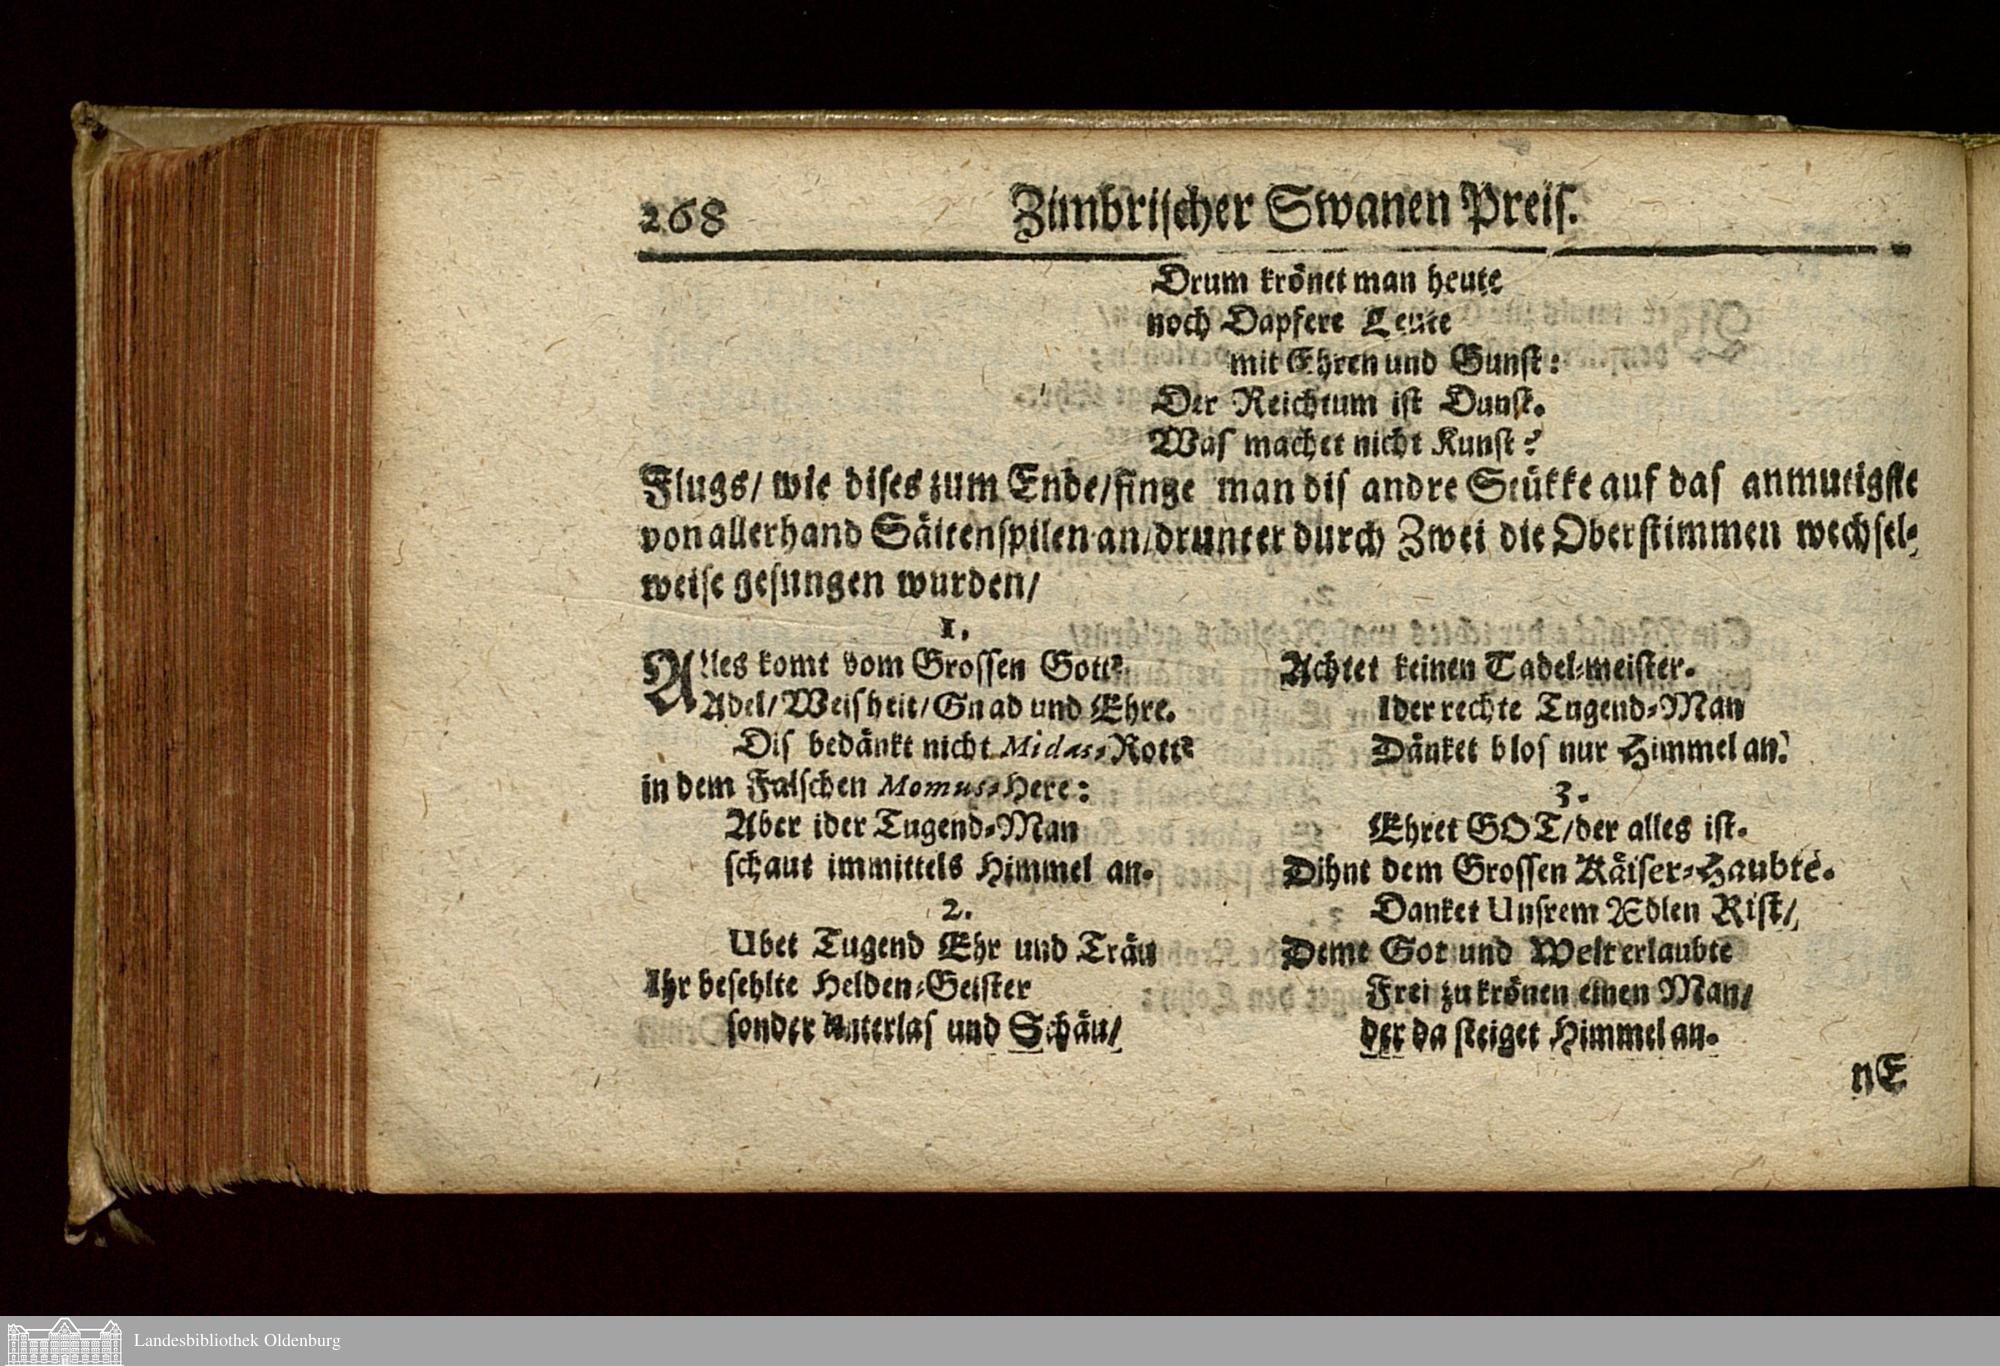 268
Zimbrischer Swanen Preis.
Drum krönet man heute
noch Dapfere Leute
mit Ehren und Gunst:
Der Reichtum ist Dunst.
Was machet nicht Kunst?
Flugs/ wie dises zum Ende/finge man dis andre Stükke auf das anmutigste
von allerhand Säitenspilen an/drunter durch Zwei die Oberstimmen wechsel-
weise gesungen wurden/
1.
Alles komt vom Grossen Gott:
Adel/Weisheit/Gnad und Ehre.
Dis bedänkt nicht Midas-Rott:
in dem Falschen Momus-Here:
Aber ider Tugend-Man
schaut immittels Himmel an.
2.
Ubet Tugend Ehr und Träu
Ihr besehlte Helden-Geister
sonder Unterlas und Schäu/
Achtet keinen Tadel-meister.
Ider rechte Tugend-Man
Dänket blos nur Himmel an.
3.
Ehret GOT/der alles ist.
Dihnt dem Grossen Käiser-Haubte.
Danket Unsrem Ædlen Rist/
Deme Got und Welt erlaubte
Frei zu krönen einen Man/
der da steiget Himmel an.
nE
Landesbibliothek Oldenburg